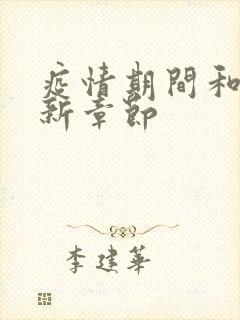 疫情期間和
新章節
李建華